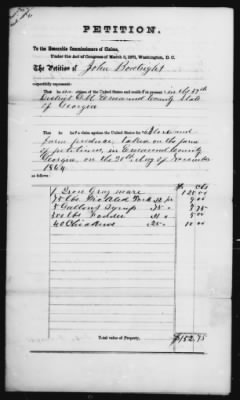 PETITION.
To the Honorable Commissioners of Claims,
Under the Act of Congress of March 3, 1871, Washington, D. C.
The Petition of John Boatright
respectfully represents:
That he is a citizen of the United States and resides at present in the 57th
District G. M. Emanuel County State
of Georgia
That he has a claim against the United States for Mare and
farm produce taken on the farm
of petitioner, in Emanuel County
Georgia, on the 30th day of November
1864
as follows:
$ cts
1 Iron Gray mare 125.00
75 lbs Pickled Pork 12 pr 9.00
5 Gallons Syrup .75 3.75
200 lbs Fodder 5.00
40 Chickens .25 10.00
Total value of Property, $152.75